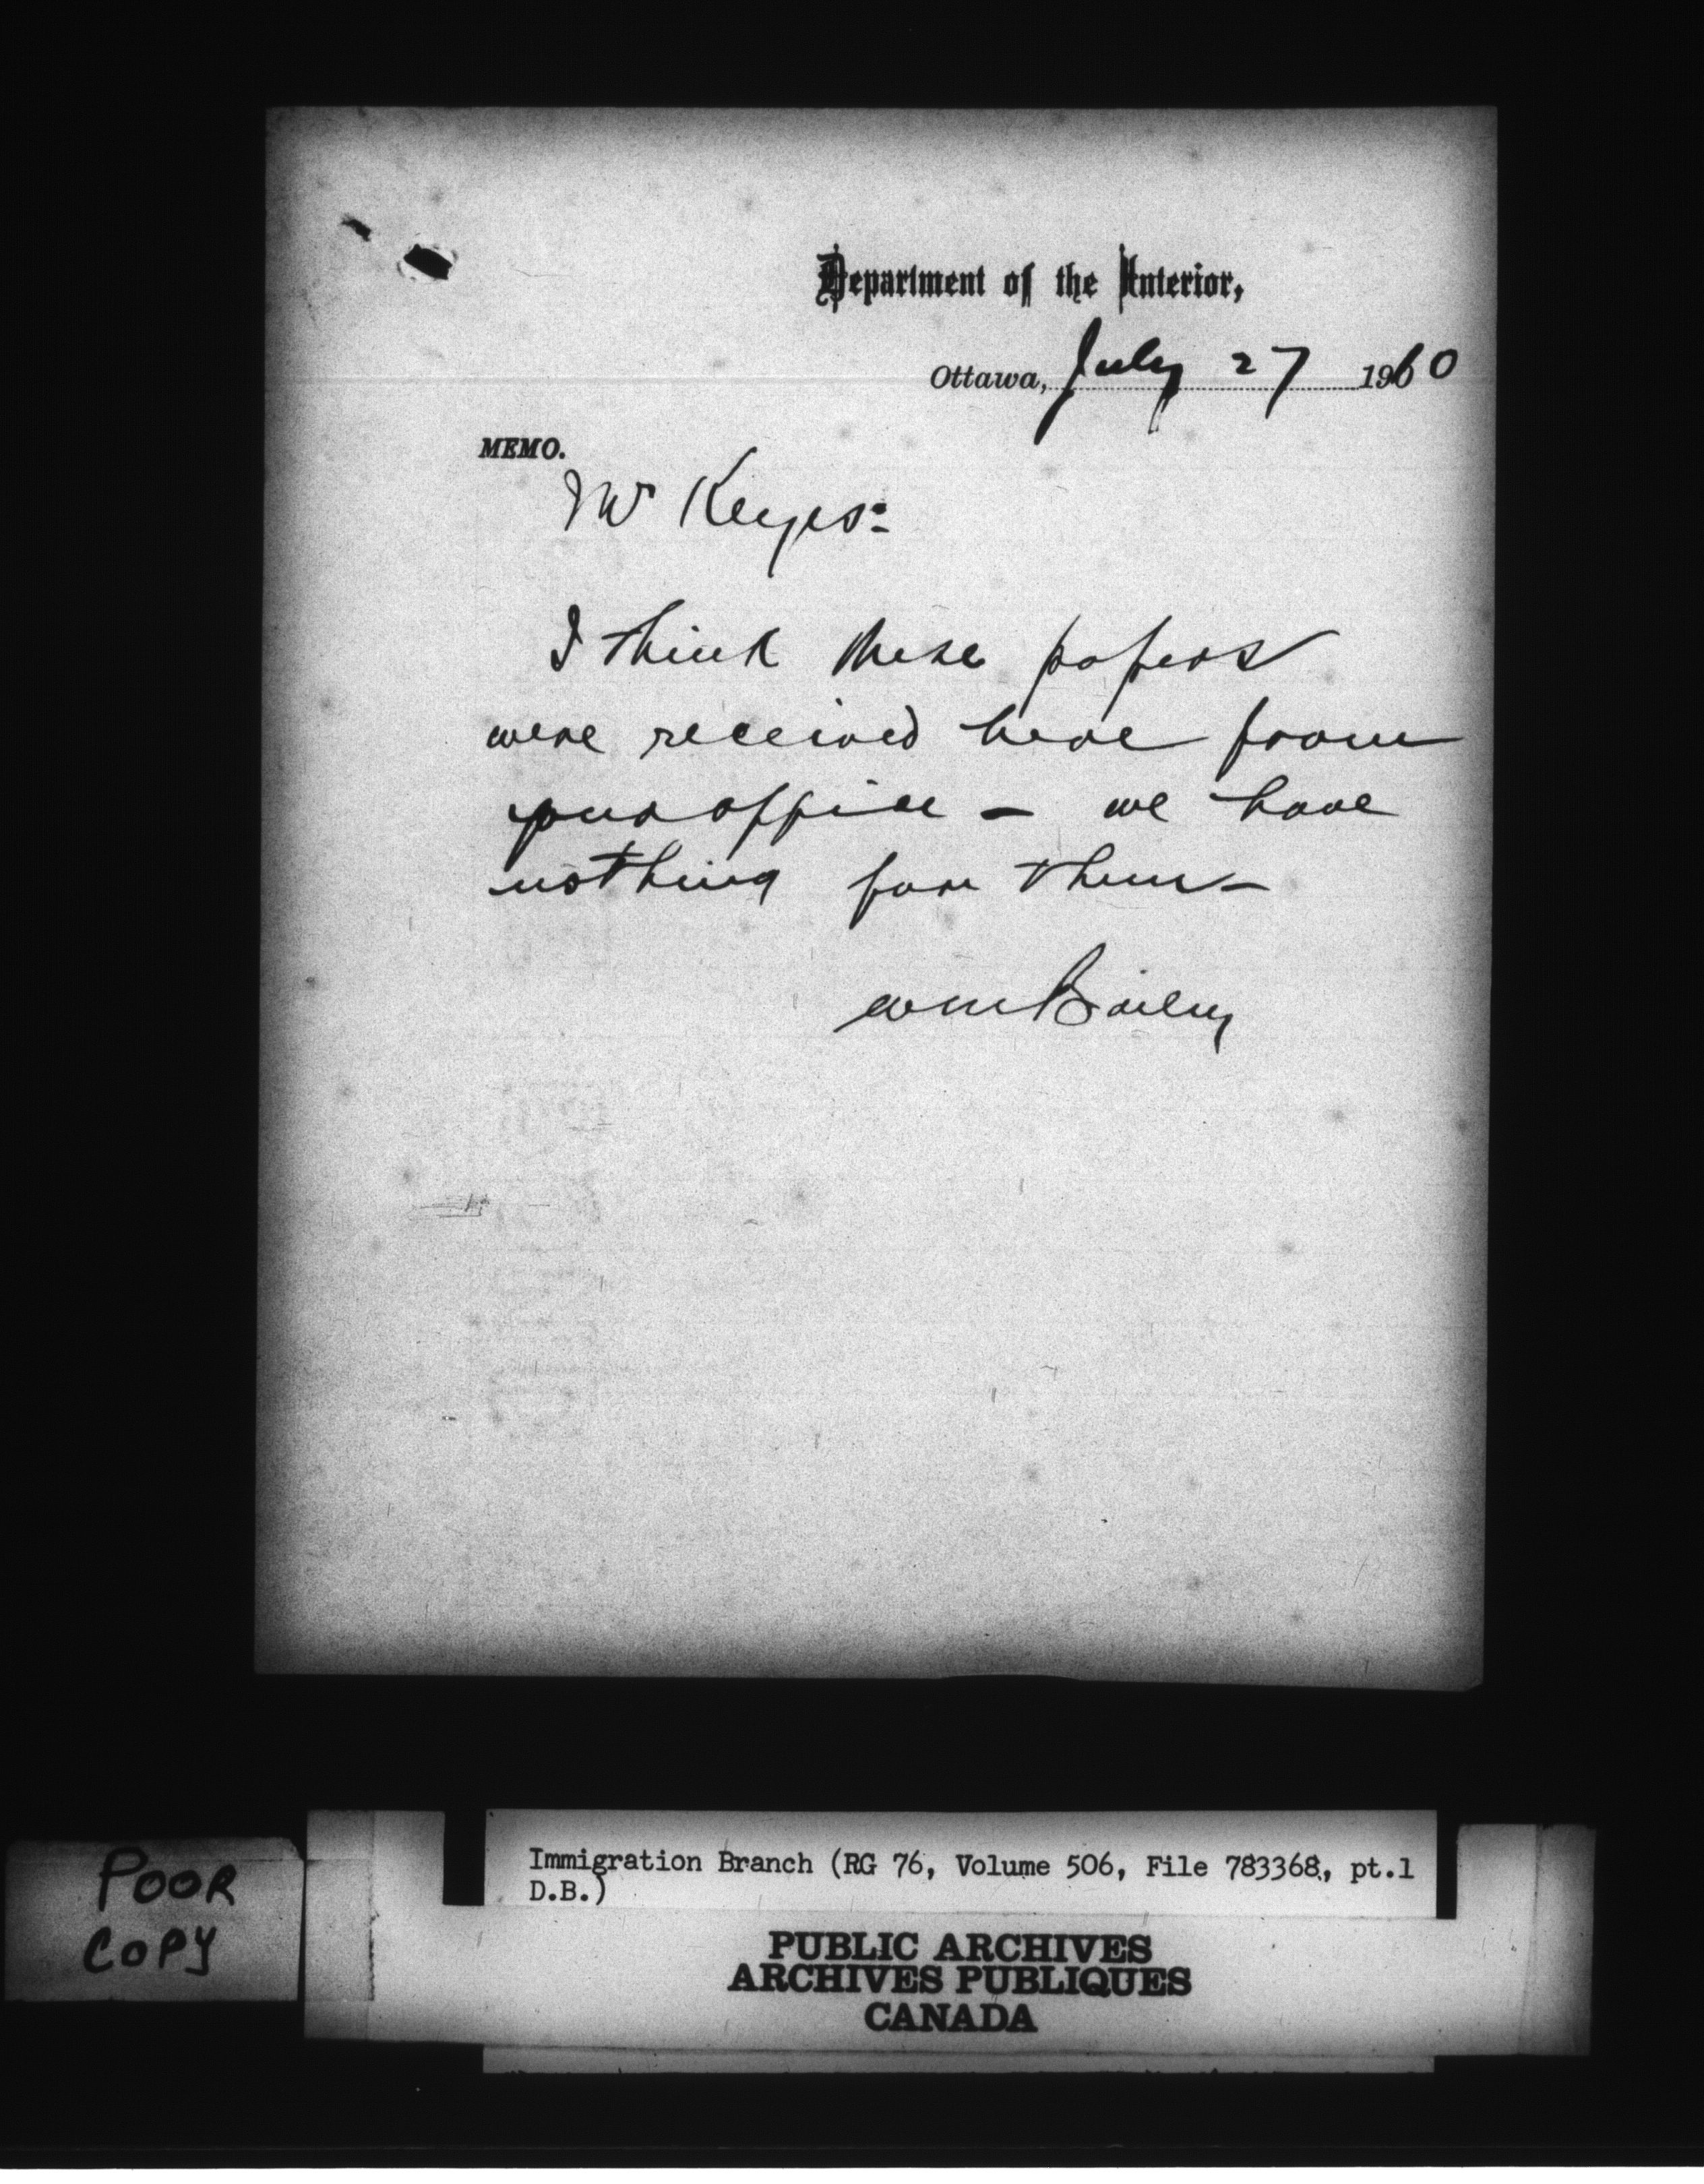 Department of the Interior,
Ottawa, July 27 1960
MEMO.
Mr Keyes:
I think these papers
were received here from
your office - we have
nothing for them -
Wm Bailey
POOR
COPY
Immigration Branch (RG 76, Volume 506, File 783368, pt.1
D.B.)
PUBLIC ARCHIVES
ARCHIVES PUBLIQUES
CANADA